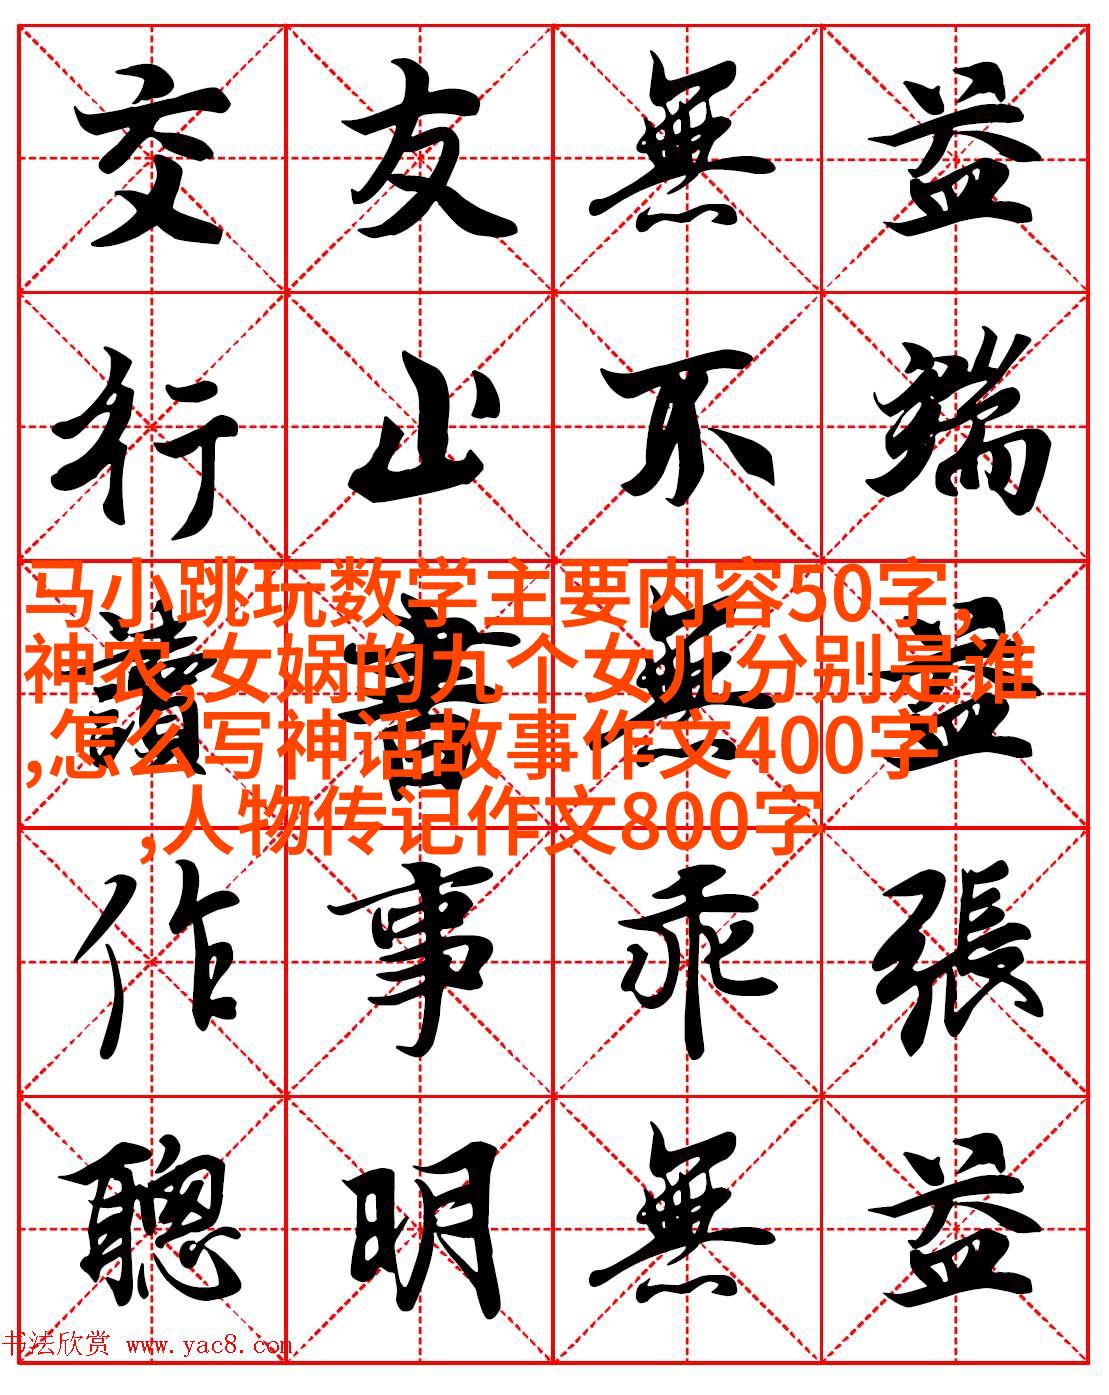 交友無益
行止不端
馬小跳玩数学主要内容50字,
神农,女娲的九个女儿分别是谁
,怎么写神话故事作文400字
,人物传记作文800字
讀書無益
作事乖張
聰明無益
书法欣赏 www.yac8.com